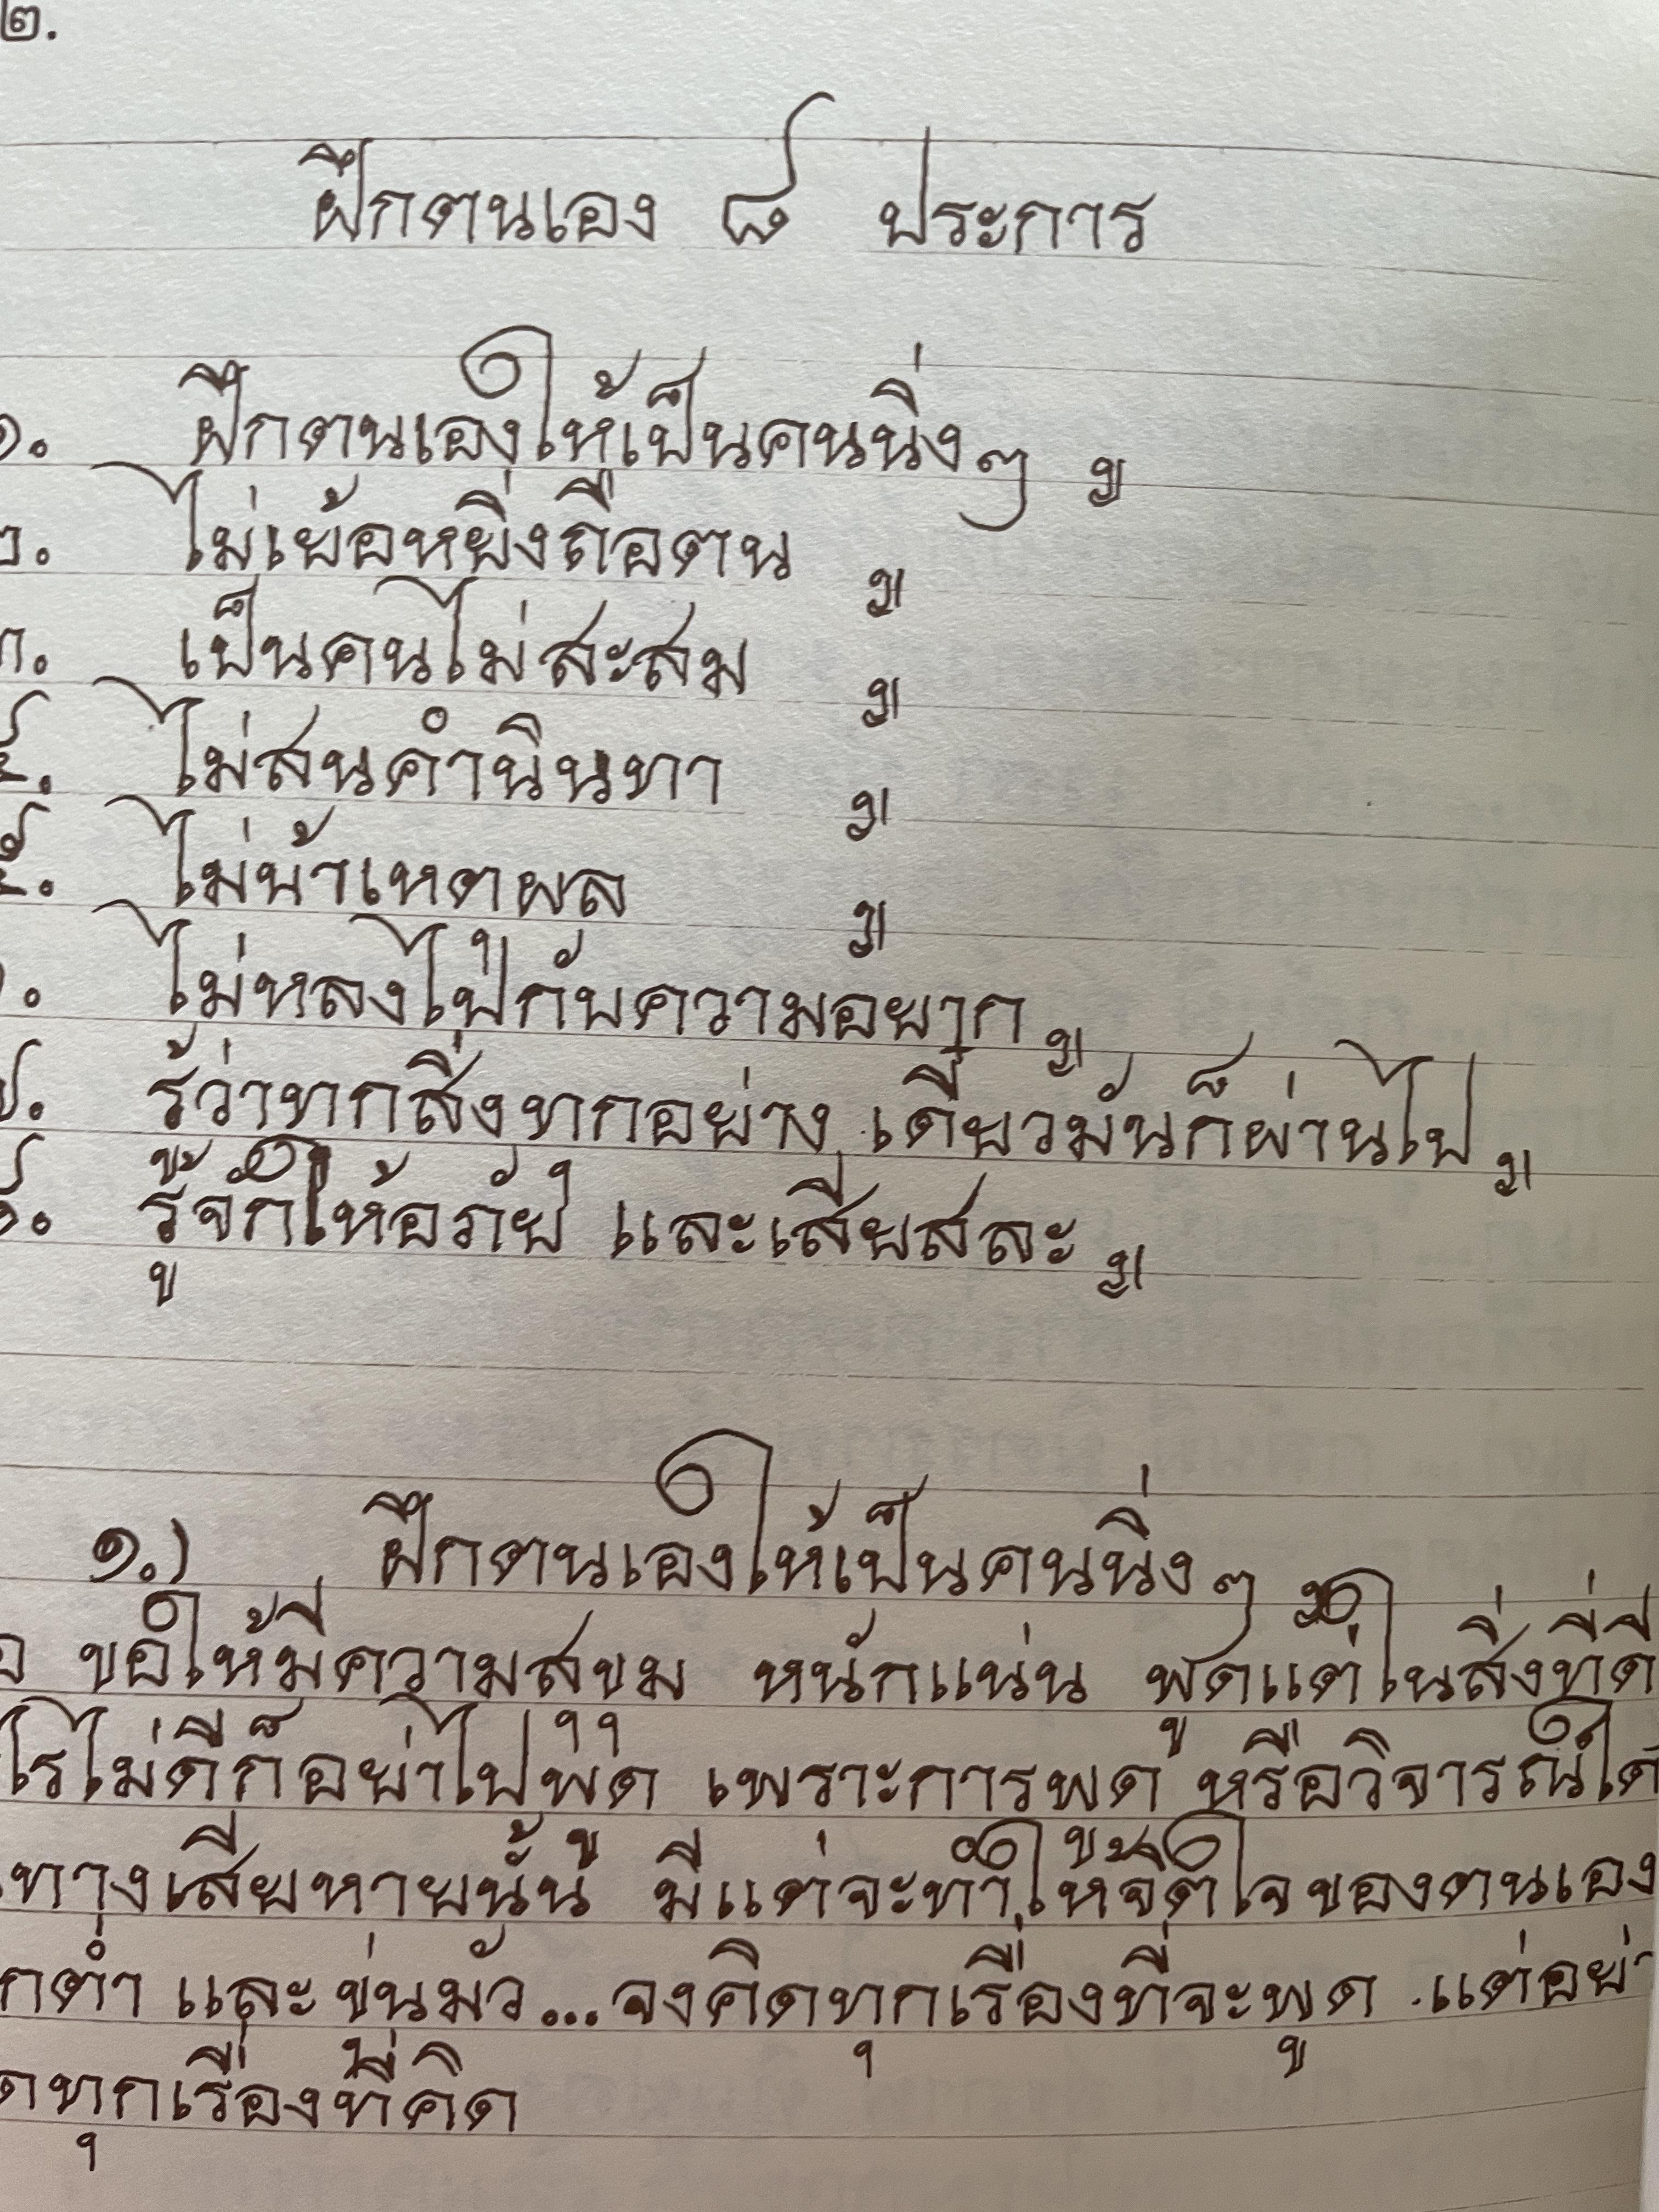 ๒.
ฝึกตนเอง ๘ ประการ
๑. ฝึกตนเองให้เป็นคนนิ่งๆ
๒. ไม่เย้อหยิ่งถือตน
๓. เป็นคนไม่สะสม
๔. ไม่สนคำนินทา
๕. ไม่บ้าเหตุผล
๖. ไม่หลงไปกับความอยาก
๗. รู้ว่าทุกสิ่งทุกอย่าง เดี๋ยวมันก็ผ่านไป
๘. รู้จักให้อภัย และเสียสละ
๑.) ฝึกตนเองให้เป็นคนนิ่งๆ
ขอให้มีความสุขุม หนักแน่น พูดแต่ในสิ่งที่ดี
ไรไม่ดีก็อย่าไปพูด เพราะการพูด หรือวิจารณ์ใด
ทางเสียหายนั้น มีแต่จะทำให้จิตใจของตนเอง
กต่ำ และขุ่นมัว...จงคิดทุกเรื่องที่จะพูด แต่อย่า
ดทุกเรื่องที่คิด